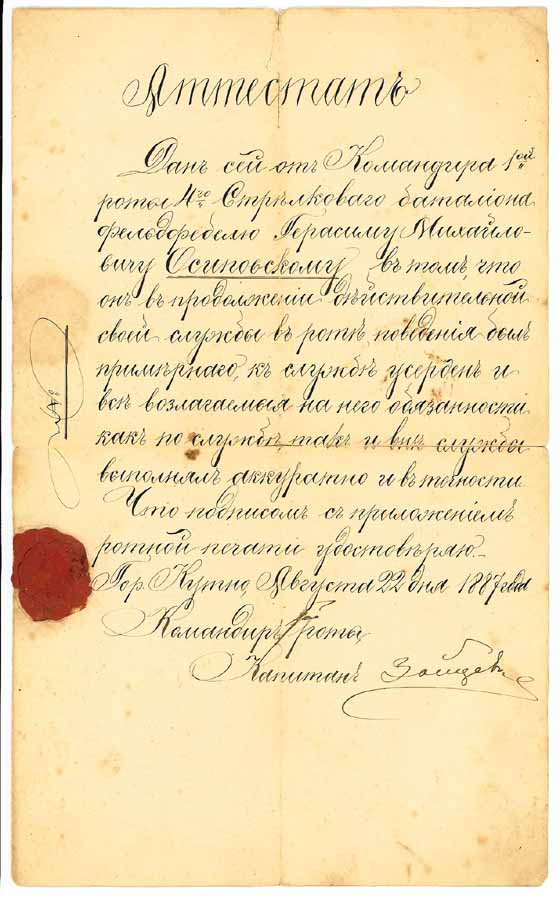 Аттестатъ
Данъ сей отъ Командира 1ой
роты 4го Стрѣлковаго баталіона
фельдфебелю Герасиму Михайло-
вичу Осиповскому въ томъ, что
онъ въ продолженіи дѣйствительной
своей службы въ ротѣ, поведенія былъ
примѣрнаго, къ службѣ усерденъ и
всѣ возлагаемыя на него обязанности
какъ по службѣ, такъ и внѣ службы
выполнялъ аккуратно и въ точности
Что подписомъ съ приложеніемъ
ротной печати удостовѣряю.-
Гор. Кутно, Августа 22 дня 1887 года
Командиръ роты,
Капитанъ Зайцевъ